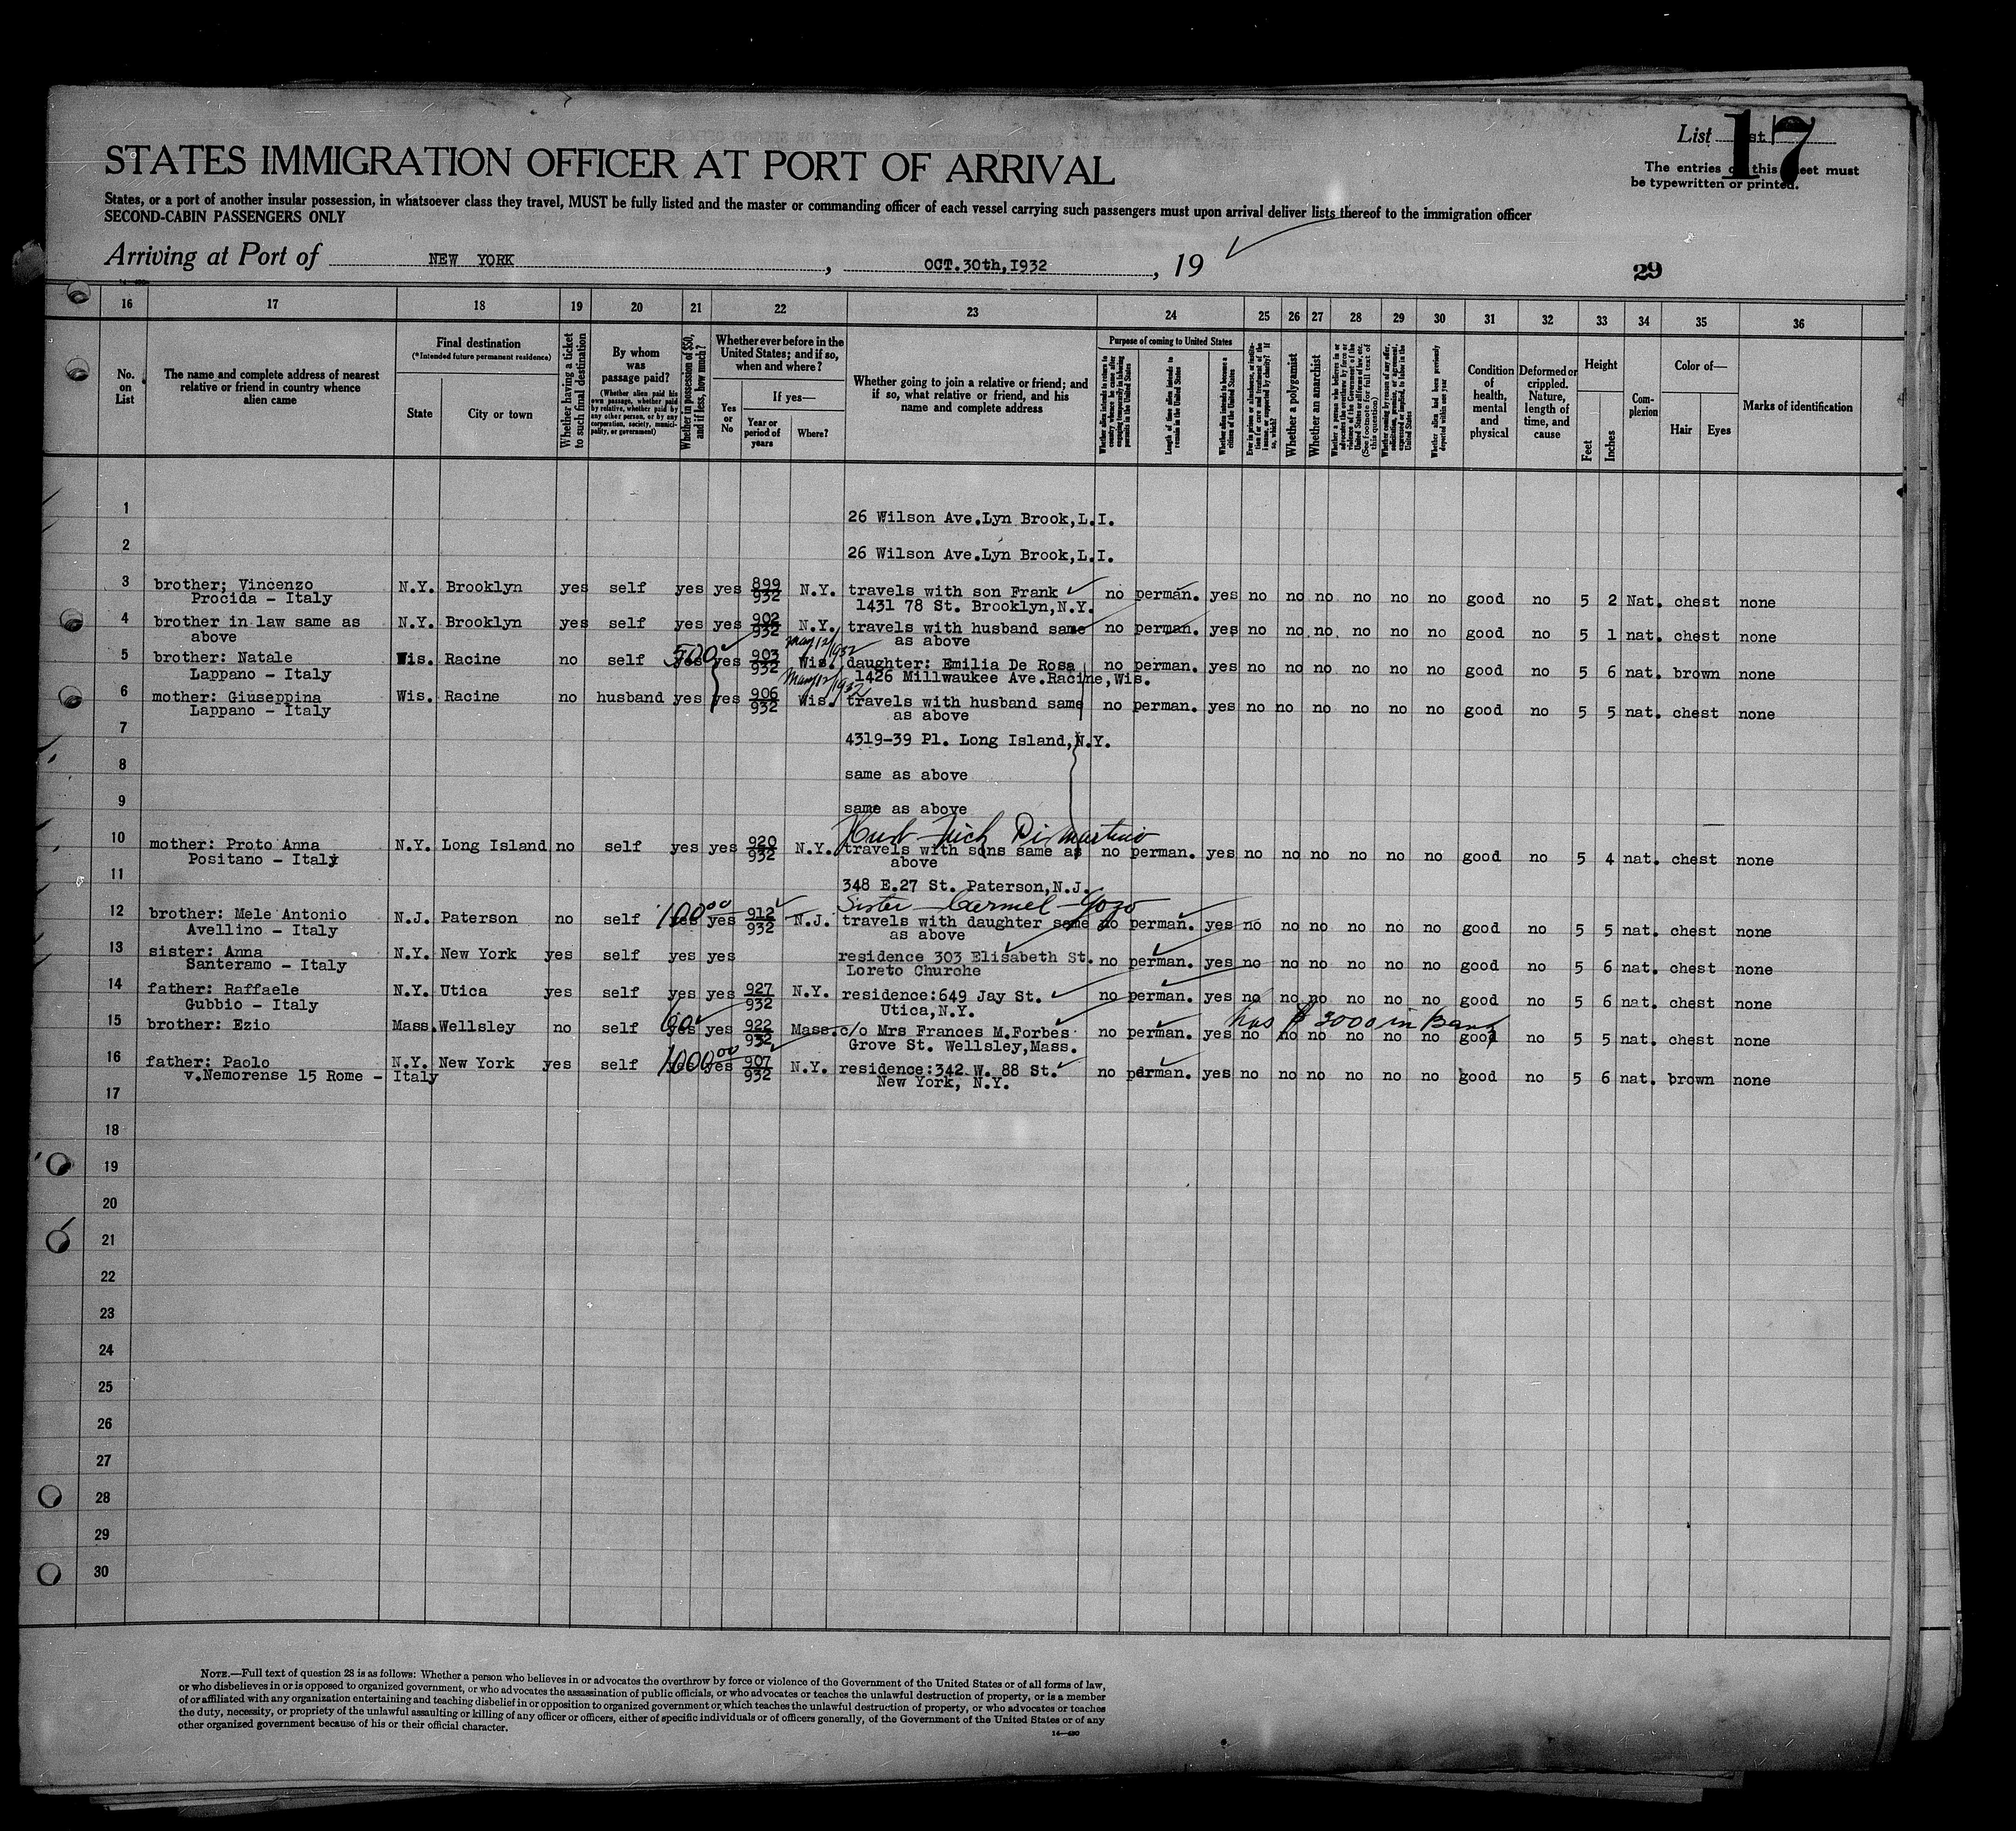 List 1st 17
The entries on this sheet must
be typewritten or printed.
STATES IMMIGRATION OFFICER AT PORT OF ARRIVAL
States, or a port of another insular possession, in whatsoever class they travel, MUST be fully listed and the master or commanding officer of each vessel carrying such passengers must upon arrival deliver lists thereof to the immigration officer
SECOND-CABIN PASSENGERS ONLY
Arriving at Port of NEW YORK, OCT.30th,1932, 19
29
16 17 18 19 20 21 22 23 24 25 26 27 28 29 30 31 32 33 34 35 36
No. on List
The name and complete address of nearest relative or friend in country whence alien came
Final destination
(*Intended future permanent residence)
State
City or town
Whether having a ticket to such final destination
By whom was passage paid?
(Whether alien paid his own passage, whether paid by relative, whether paid by any other person, or by any corporation, society, municipality, or government)
Whether in possession of $50, and if less, how much?
Whether ever before in the United States; and if so, when and where?
Yes or No
If yes—
Year or period of years
Where?
Whether going to join a relative or friend; and if so, what relative or friend, and his name and complete address
Purpose of coming to United States
Length of time alien intends to remain in the United States
Whether alien intends to become a citizen of the United States
Whether a polygamist
Whether an anarchist
(See footnote for full text of this question)
Whether alien had been previously deported within one year
Condition of health, mental and physical
Deformed or crippled. Nature, length of time, and cause
Height
Feet
Inches
Complexion
Color of—
Hair
Eyes
Marks of identification
1 26 Wilson Ave.Lyn Brook,L.I.
2 26 Wilson Ave.Lyn Brook,L.I.
3 brother; Vincenzo N.Y. Brooklyn yes self yes yes 899/932 N.Y. travels with son Frank no perman. yes no no no no no no good no 5 2 Nat. chest none
Procida - Italy 1431 78 St. Brooklyn,N.Y.
4 brother in law same as N.Y. Brooklyn yes self yes yes 902/932 N.Y. travels with husband same no perman. yes no no no no no no good no 5 1 nat. chest none
above as above
May 12/1932
5 brother: Natale Wis. Racine no self yes 500 yes 903/932 Wis. daughter: Emilia De Rosa no perman. yes no no no no no no good no 5 6 nat. brown none
Lappano - Italy 1426 Millwaukee Ave.Racine,Wis.
May 12/1932
6 mother: Giuseppina Wis. Racine no husband yes yes 906/932 Wis. travels with husband same no perman. yes no no no no no no good no 5 5 nat. chest none
Lappano - Italy as above
7 4319-39 Pl. Long Island,N.Y.
8 same as above
9 same as above
Husb Nick Di Martino
10 mother: Proto Anna N.Y. Long Island no self yes yes 920/932 N.Y. travels with sons same as no perman. yes no no no no no no good no 5 4 nat. chest none
Positano - Italy above
11 348 E.27 St. Paterson,N.J.
Sister Carmel
12 brother: Mele Antonio N.J. Paterson no self yes 100 00 yes 912/932 N.J. travels with daughter same no perman. yes no no no no no no good no 5 5 nat. chest none
Avellino - Italy as above
13 sister: Anna N.Y. New York yes self yes yes residence 303 Elisabeth St. no perman. yes no no no no no no good no 5 6 nat. chest none
Santeramo - Italy Loreto Churche
14 father: Raffaele N.Y. Utica yes self yes yes 927/932 N.Y. residence:649 Jay St. no perman. yes no no no no no no good no 5 6 nat. chest none
Gubbio - Italy Utica,N.Y.
has $ 2000 in Bank
15 brother: Ezio Mass. Wellsley no self yes 60 yes 922/932 Mass. c/o Mrs Frances M.Forbes no perman. yes no no no no no no good no 5 5 nat. chest none
Grove St. Wellsley,Mass.
16 father: Paolo N.Y. New York yes self yes 1000 00 yes 907/932 N.Y. residence:342 W. 88 St. no perman. yes no no no no no no good no 5 6 nat. brown none
v.Nemorense 15 Rome - Italy New York, N.Y.
17
18
19
20
21
22
23
24
25
26
27
28
29
30
NOTE.—Full text of question 28 is as follows: Whether a person who believes in or advocates the overthrow by force or violence of the Government of the United States or of all forms of law,
or who disbelieves in or is opposed to organized government, or who advocates the assassination of public officials, or who advocates or teaches the unlawful destruction of property, or is a member
of or affiliated with any organization entertaining and teaching disbelief in or opposition to organized government or which teaches the unlawful destruction of property, or who advocates or teaches
the duty, necessity, or propriety of the unlawful assaulting or killing of any officer or officers, either of specific individuals or of officers generally, of the Government of the United States or of any
other organized government because of his or their official character.
14—430